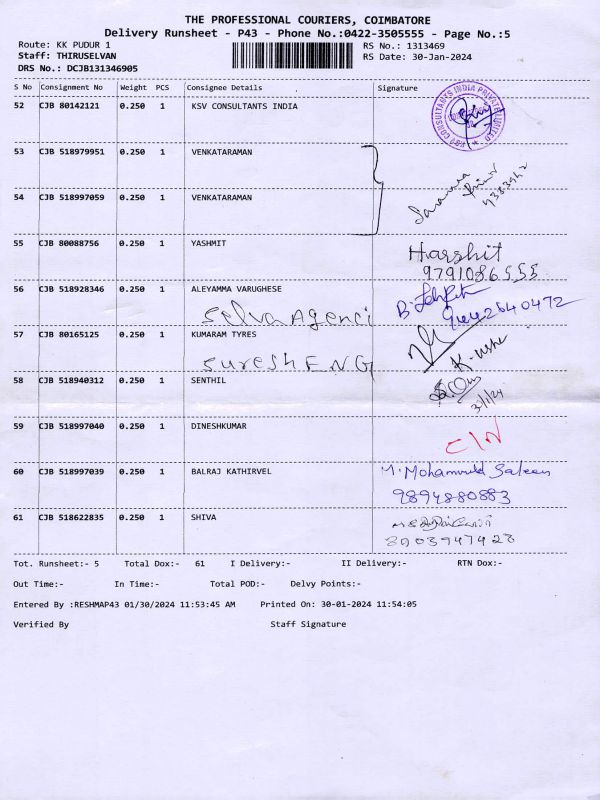 THE PROFESSIONAL COURIERS, COIMBATORE
Delivery Runsheet - P43 - Phone No.:0422-3505555 - Page No.:5
Route: KK PUDUR 1 RS No.: 1313469
Staff: THIRUSELVAN RS Date: 30-Jan-2024
DRS No.: DCJB131346905
S No Consignment No Weight PCS Consignee Details Signature
52 CJB 80142121 0.250 1 KSV CONSULTANTS INDIA
KSV CONSULTANTS INDIA PRIVATE LIMITED
53 CJB 518979951 0.250 1 VENKATARAMAN
54 CJB 518997059 0.250 1 VENKATARAMAN
55 CJB 80088756 0.250 1 YASHMIT Harshit
9791086555
56 CJB 518928346 0.250 1 ALEYAMMA VARUGHESE
Selva Agenci 9442640472
57 CJB 80165125 0.250 1 KUMARAM TYRES
Suresh ENG K. Usha
58 CJB 518940312 0.250 1 SENTHIL
31/1/24
59 CJB 518997040 0.250 1 DINESHKUMAR
C/N
60 CJB 518997039 0.250 1 BALRAJ KATHIRVEL M. Mohamruld Saleem
9894880883
61 CJB 518622835 0.250 1 SHIVA
8903947428
Tot. Runsheet:- 5 Total Dox:- 61 I Delivery:- II Delivery:- RTN Dox:-
Out Time:- In Time:- Total POD:- Delvy Points:-
Entered By :RESHMAP43 01/30/2024 11:53:45 AM Printed On: 30-01-2024 11:54:05
Verified By Staff Signature